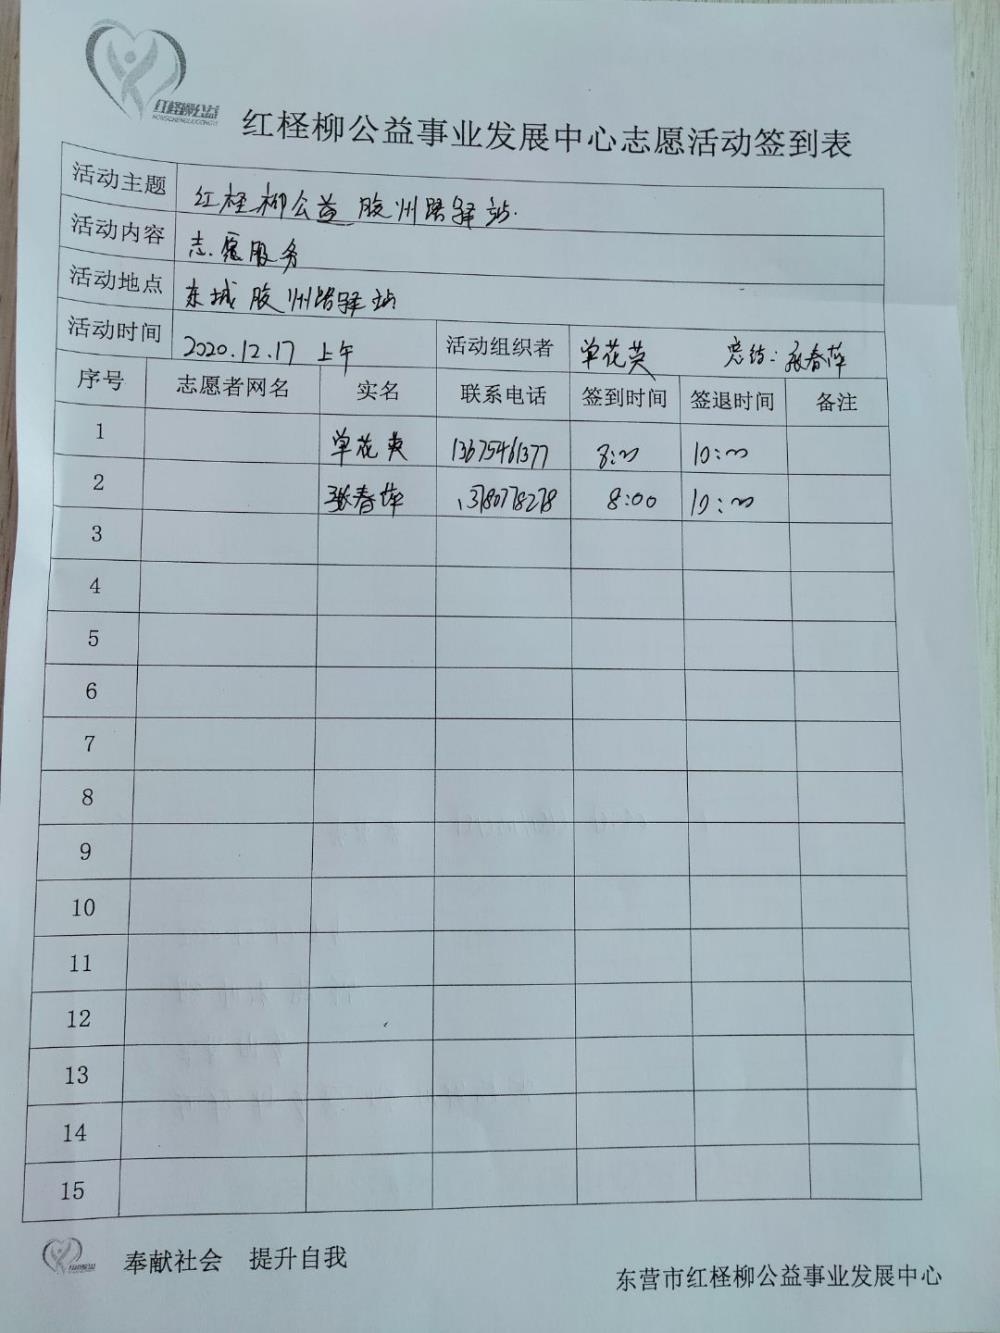 红柽柳公益
HONGCHENGLIUGONGYI
红柽柳公益事业发展中心志愿活动签到表
活动主题 红柽柳公益 胶州路驿站.
活动内容 志愿服务
活动地点 东城胶州路驿站
活动时间 2020.12.17 上午 活动组织者 单花英 总结:张春萍
序号 志愿者网名 实名 联系电话 签到时间 签退时间 备注
1 单花英 13675461377 8:00 10:00
2 张春萍 13780778278 8:00 10:00
3
4
5
6
7
8
9
10
11
12
13
14
15
奉献社会 提升自我
东营市红柽柳公益事业发展中心